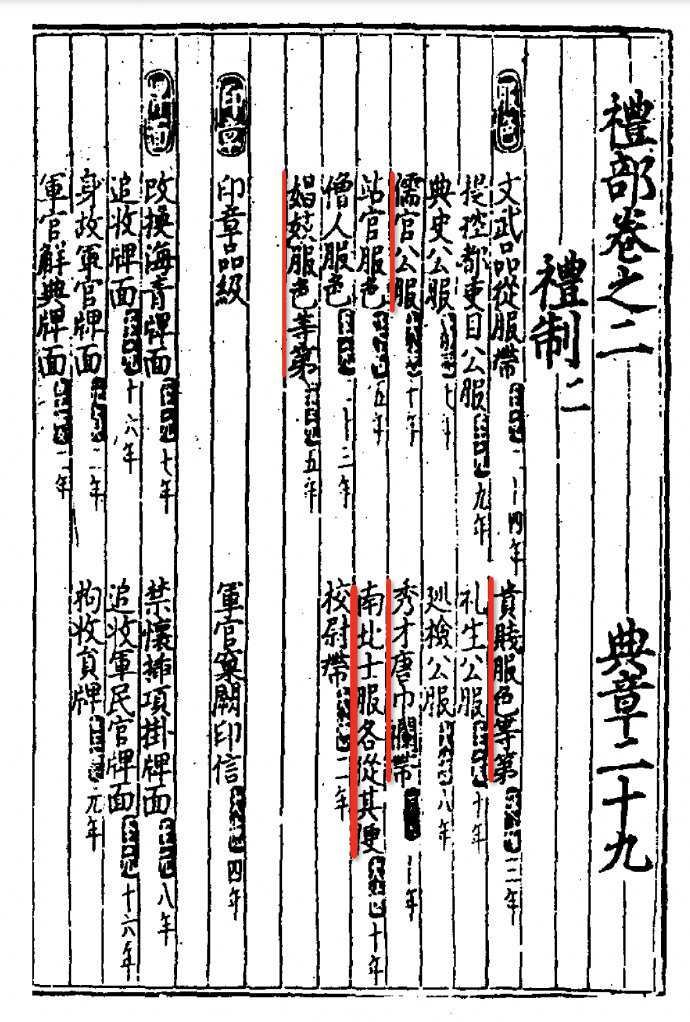 禮部卷之二 典章二十九
禮制二
服色 文武品從服帶 四年 貴賤服色等第 三年
提控都吏目公服 九年 礼生公服 十年
典史公服 廵檢公服 八年
儒官公服 十年 秀才唐巾襴帶 年
站官服色 五年 南北士服各從其便 十年
僧人服色 十三年 校尉帶 二年
娼妓服色等第 五年
印章 印章品級 軍官窠闕印信 四年
牌面 改換海青牌面 七年 禁懷揷項掛牌面 八年
追收牌面 十六年 追收軍民官牌面 十六年
身故軍官牌面 二年 拘收員牌 元年
軍官解典牌面 二年